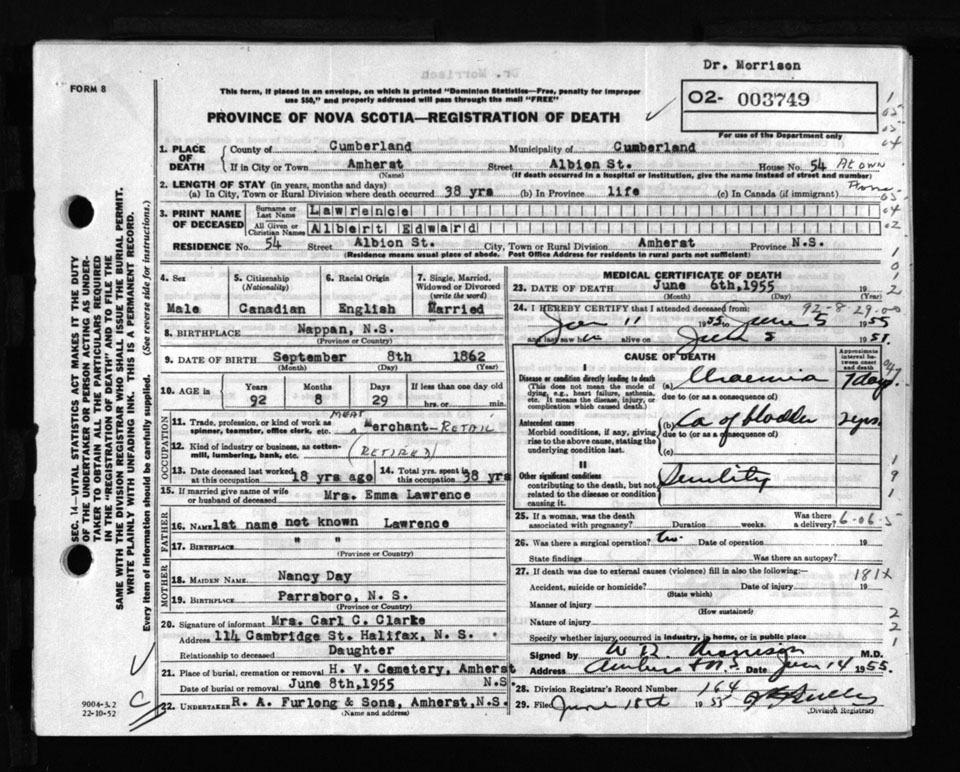 Dr. Morrison
FORM 8
This form, if placed in an envelope, on which is printed "Dominion Statistics—Free, penalty for improper
use $50," and properly addressed will pass through the mail "FREE"
02- 003749
PROVINCE OF NOVA SCOTIA—REGISTRATION OF DEATH
For use of the Department only
1. PLACE OF DEATH
County of Cumberland Municipality of Cumberland
If in City or Town Amherst Street Albion St. House No. 54
(Name) (If death occurred in a hospital or institution, give the name instead of street and number)
At own Home
2. LENGTH OF STAY (in years, months and days)
(a) In City, Town or Rural Division where death occurred 38 yrs (b) In Province life (c) In Canada (if immigrant)
3. PRINT NAME OF DECEASED
Surname or Last Name Lawrence
All Given or Christian Names Albert Edward
RESIDENCE No. 54 Street Albion St. City, Town or Rural Division Amherst Province N.S.
(Residence means usual place of abode. Post Office Address for residents in rural parts not sufficient)
4. Sex Male
5. Citizenship (Nationality) Canadian
6. Racial Origin English
7. Single, Married, Widowed or Divorced (write the word) Married
8. BIRTHPLACE Nappan, N.S.
(Province or Country)
9. DATE OF BIRTH September 8th 1862
(Month) (Day) (Year)
10. AGE Years 92 Months 8 Days 29 If less than one day old hrs. or min.
OCCUPATION
11. Trade, profession, or kind of work as spinner, teamster, office clerk, etc. MEAT Merchant-RETAIL
12. Kind of industry or business, as cotton-mill, lumbering, bank, etc. (RETIRED)
13. Date deceased last worked at this occupation 18 yrs ago
14. Total yrs. spent in this occupation 38 yrs
15. If married give name of wife or husband of deceased Mrs. Emma Lawrence
FATHER
16. NAME 1st name not known Lawrence
17. BIRTHPLACE " "
(Province or Country)
MOTHER
18. MAIDEN NAME Nancy Day
19. BIRTHPLACE Parrsboro, N. S.
(Province or Country)
20. Signature of informant Mrs. Carl C. Clarke
Address 114 Cambridge St. Halifax, N. S.
Relationship to deceased Daughter
21. Place of burial, cremation or removal H. V. Cemetery, Amherst N.S.
Date of burial or removal June 8th, 1955
22. UNDERTAKER R. A. Furlong & Sons, Amherst, N.S.
(Name and address)
MEDICAL CERTIFICATE OF DEATH
23. DATE OF DEATH June 6th, 1955 19
(Month) (Day) (Year)
92-8-29-00
24. I HEREBY CERTIFY that I attended deceased from:
Jan 11 1955 to June 5 1955
and last saw h alive on June 5 195
CAUSE OF DEATH
Approximate interval between onset and death
I
Disease or condition directly leading to death
(This does not mean the mode of dying, e.g., heart failure, asthenia, etc. It means the disease, injury, or complication which caused death.)
(a) Uraemia 7 days
due to (or as a consequence of)
Antecedent causes
Morbid conditions, if any, giving rise to the above cause, stating the underlying condition last.
(b) Ca of bladder 2 yrs
due to (or as a consequence of)
(c)
II
Other significant conditions
contributing to the death, but not related to the disease or condition causing it.
Senility
25. If a woman, was the death associated with pregnancy? Duration weeks. Was there a delivery?
6-06-5
26. Was there a surgical operation? Date of operation 19
State findings Was there an autopsy?
27. If death was due to external causes (violence) fill in also the following:—
181X
Accident, suicide or homicide? Date of injury 19
(State which)
Manner of injury
(How sustained)
Nature of injury
Specify whether injury occurred in industry, in home, or in public place
Signed by Morrison M.D.
Address Amherst N.S. Date June 14 1955.
28. Division Registrar's Record Number 164
29. Filed June 18th 1955
(Division Registrar)
SEC. 14—VITAL STATISTICS ACT MAKES IT THE DUTY
OF THE UNDERTAKER OR PERSON ACTING AS UNDER-
TAKER TO OBTAIN ALL THE PARTICULARS REQUIRED
IN THE "REGISTRATION OF DEATH" AND TO FILE THE
SAME WITH THE DIVISION REGISTRAR WHO SHALL ISSUE THE BURIAL PERMIT.
WRITE PLAINLY WITH UNFADING INK. THIS IS A PERMANENT RECORD.
Every item of information should be carefully supplied. (See reverse side for instructions.)
9004-3.2
22-10-52